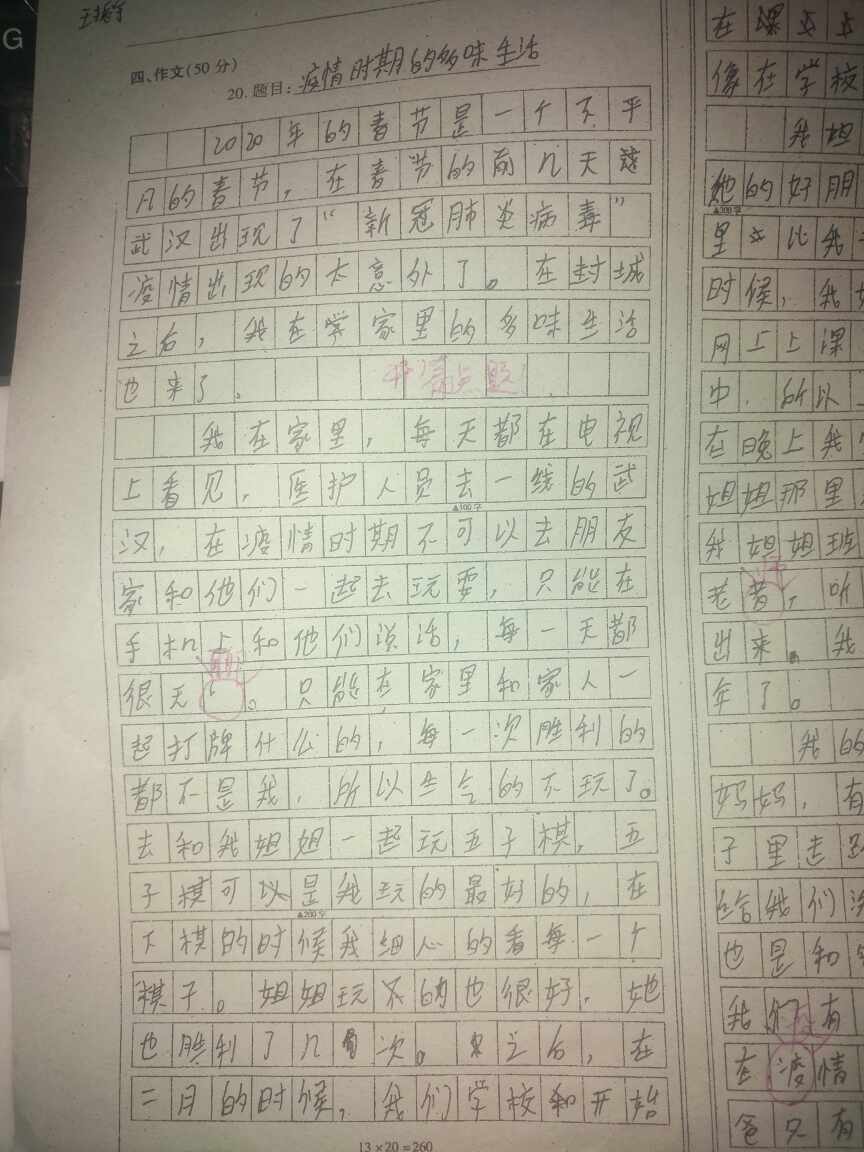 G
四、作文(50分)
20.题目：疫情时期的多味生活
2020年的春节是一个不平
凡的春节，在春节的前几天
武汉出现了“新冠肺炎病毒”
疫情出现的太意外了。在封城
之后，我在家里的多味生活
也来了。
开篇点题
我在家里，每天都在电视
上看见，医护人员去一线的武
▲100字
汉，在疫情时期不可以去朋友
家和他们一起去玩耍，只能在
手机上和他们说话，每一天都
很无。只能在家里和家人一
起打牌什么的，每一次胜利的
都不是我，所以生气的不玩了。
去和我姐姐一起玩五子棋，五
子棋可以是我玩的最好的，在
▲200字
下棋的时候我细心的看每一个
棋子。姐姐玩的也很好，她
也胜利了几次。之后，在
二月的时候，我们学校和开始
13×20=260
在课
像在学校
我姐
她的好朋
▲300字
里 比我
时候，我
网上上课
中，所以
在晚上我
姐姐那里
我姐姐班
老，听
出来，我
年了。
我的
妈妈，有
子里走
给我们
也是和
我们有
在疫情
爸只有